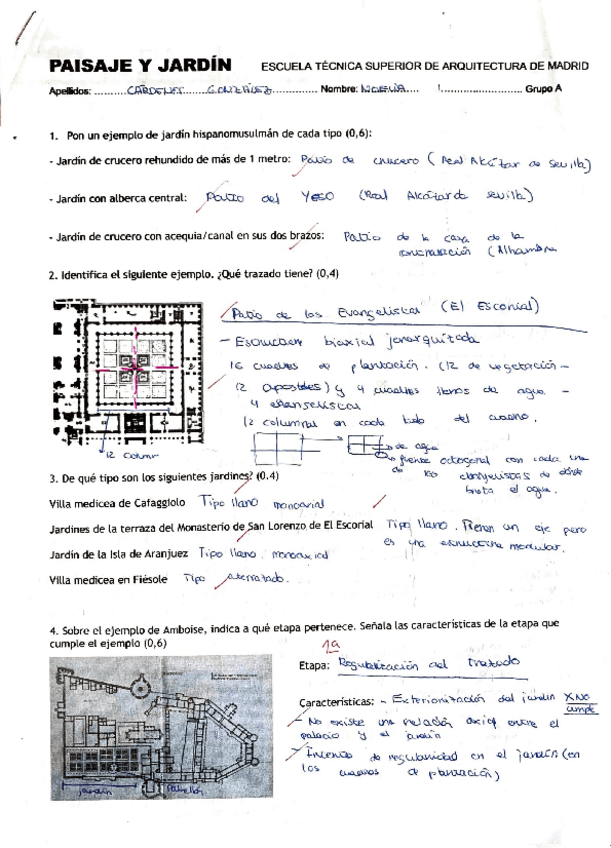 PAISAJE Y JARDÍN ESCUELA TÉCNICA SUPERIOR DE ARQUITECTURA DE MADRID
Apellidos: CÁRDENES GONZÁLEZ Nombre: NOELIA Grupo A
1. Pon un ejemplo de jardín hispanomusulmán de cada tipo (0,6):
- Jardín de crucero rehundido de más de 1 metro: Patio de crucero (Real Alcázar de Sevilla)
- Jardín con alberca central: Patio del YESO (Real Alcázar de Sevilla)
- Jardín de crucero con acequia/canal en sus dos brazos: Patio de la casa de la
contratación (Alhambra
2. Identifica el siguiente ejemplo. ¿Qué trazado tiene? (0,4)
Patio de los Evangelistas (El Escorial)
- Estructura biaxial jerarquizada
16 cuadros de plantación. (12 de vegetación -
12 apóstoles) y 4 cuadros llenos de agua. -
4 evangelistas
12 columnas en cada lado del cuadro.
12 column
de agua
fuente octogonal con cada uno
de los evangelistas de donde
brota el agua.
3. De qué tipo son los siguientes jardines? (0.4)
Villa medicea de Cafaggiolo Tipo llano monoaxial
Jardines de la terraza del Monasterio de San Lorenzo de El Escorial Tipo llano. Tienen un eje pero
es una estructura modular.
Jardín de la Isla de Aranjuez Tipo llano. monoaxial
Villa medicea en Fiésole Tipo aterrazado.
4. Sobre el ejemplo de Amboise, indica a qué etapa pertenece. Señala las características de la etapa que
cumple el ejemplo (0,6)
1ª
Etapa: Regularización del trazado
Características: - Exteriorización del jardín X No
cumple
- No existe una relación axial entre el
palacio y el jardín
- Intento de regularidad en el jardín (en
los cuadros de plantación)
jardín